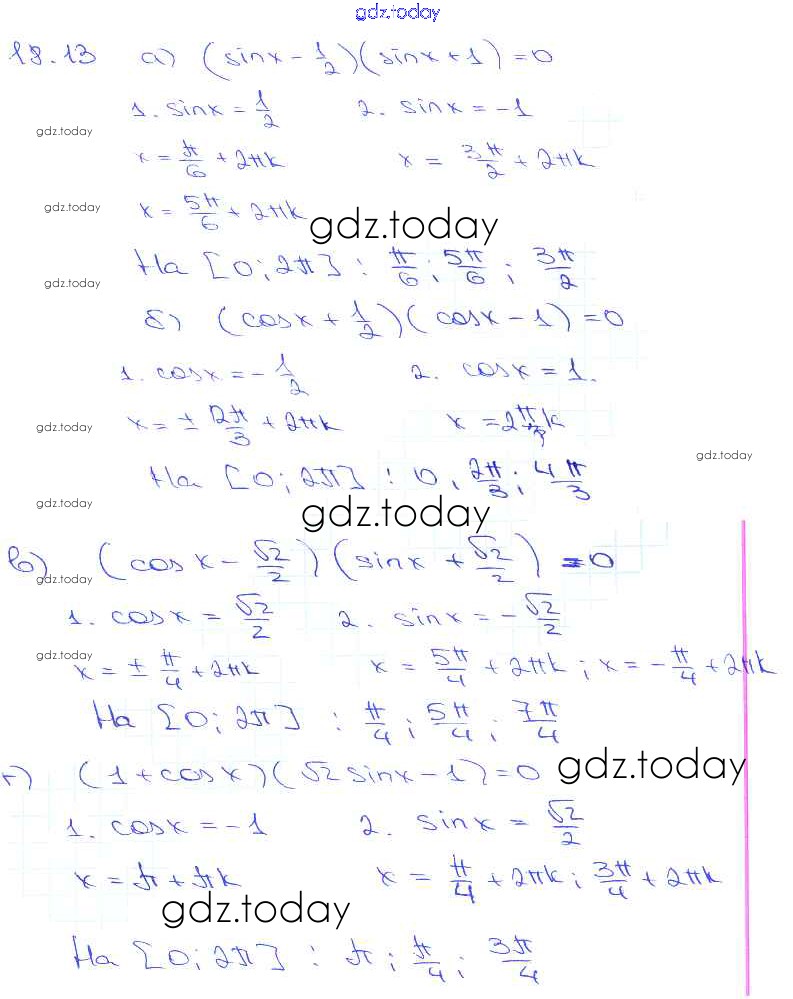 gdz.today
18.13 а) (sinx - 1/2)(sinx + 1) = 0
1. sinx = 1/2 2. sinx = -1
gdz.today
x = π/6 + 2πk x = 3π/2 + 2πk
gdz.today x = 5π/6 + 2πk
gdz.today
gdz.today На [0; 2π] : π/6 ; 5π/6 ; 3π/2
б) (cosx + 1/2)(cosx - 1) = 0
1. cosx = - 1/2 2. cosx = 1.
gdz.today x = ± 2π/3 + 2πk x = 2πk
gdz.today
На [0; 2π] : 0, 2π/3 ; 4π/3
gdz.today
gdz.today
в) (cosx - √2/2)(sinx + √2/2) = 0
gdz.today
1. cosx = √2/2 2. sinx = - √2/2
gdz.today
x = ± π/4 + 2πk x = 5π/4 + 2πk ; x = - π/4 + 2πk
На [0; 2π] : π/4 ; 5π/4 ; 7π/4
г) (1 + cosx)(√2 sinx - 1) = 0
gdz.today
1. cosx = -1 2. sinx = √2/2
x = π + πk x = π/4 + 2πk ; 3π/4 + 2πk
gdz.today
На [0; 2π] : π ; π/4 ; 3π/4